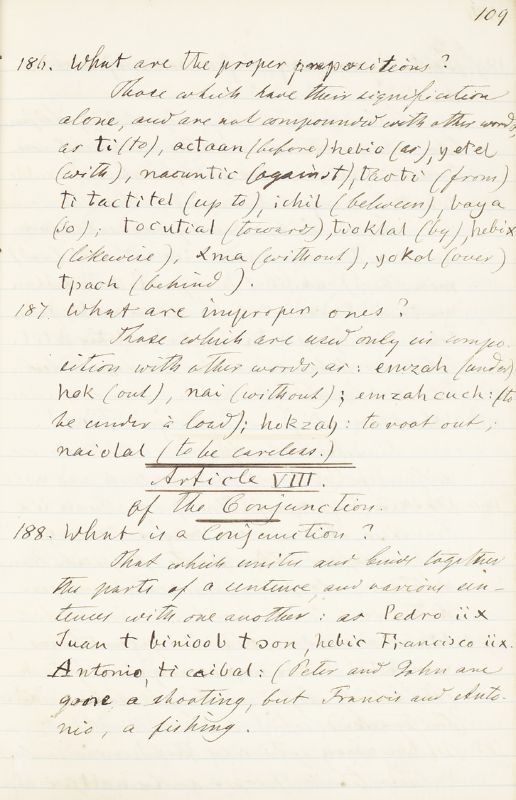 109
186. What are the proper prepositions?
Those which have their signification
alone, and are not compounded with other words,
as ti (to), actaan (before) hebic (as), yetel
(with), nacuntic (against), tacti (from)
ti tactitel (up to), ichil (between), baya
(so); tocutial (towards), tioklal (by), hebix
(likewise), xma (without), yokol (over)
tpach (behind).
187. What are improper ones?
Those which are used only in compo-
sition with other words, as: emzah (under)
hok (out), nai (without); emzahcuch: (to
be under a load); hokzah: to root out;
naiolal (to be careless.)
Article VIII.
Of the Conjunction.
188. What is a Conjunction?
That which unites and binds together
the parts of a sentence, and various sen-
tences with one another: as Pedro iix
Juan t binioob tson, hebic Francisco iix.
Antonio, ti caibal: (Peter and John are
gone a shooting, but Francis and Anto-
nio, a fishing.